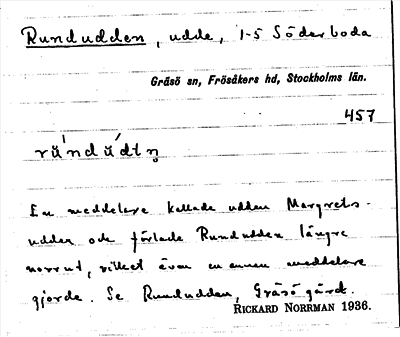 Rundudden, udde, 1-5 Söderboda
Gräsö sn, Frösåkers hd, Stockholms län.
457
rùndúdtn̥
En meddelare kallade udden Margrets-
udden och förlade Rundudden längre
norrut, vilket även en annan meddelare
gjorde. Se Rundudden, Gräsö gård.
RICKARD NORRMAN 1936.